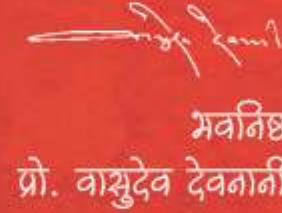 भवनिष्ठ
प्रो. वासुदेव देवनानी